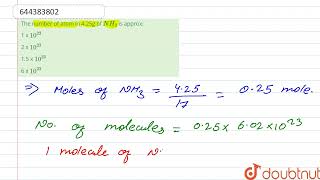 644383802
The number of atom in 4.25g of NH₃ is approx:
1 x 10²³
2 x 10²³
1.5 x 10²³
6 x 10²³
⇒ Moles of NH₃ = 4.25/17 = 0.25 mole.
No. of molecules = 0.25 x 6.02 x 10²³
1 molecule of N
doubtnut